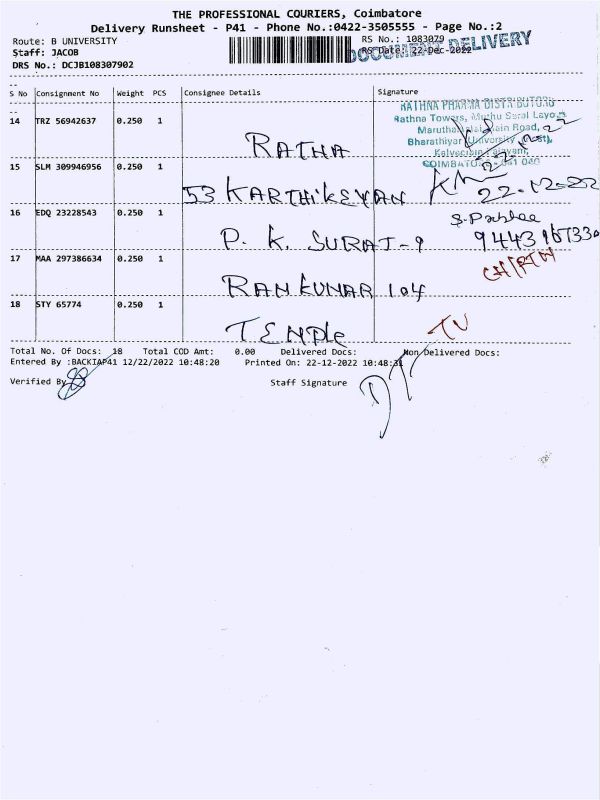 THE PROFESSIONAL COURIERS, Coimbatore
Delivery Runsheet - P41 - Phone No.:0422-3505555 - Page No.:2
Route: B UNIVERSITY
RS No.: 1083079
Staff: JACOB
RS Date: 22-Dec-2022
DOCUMENT DELIVERY
DRS No.: DCJB108307902
S No Consignment No Weight PCS Consignee Details Signature
RATHNA PHARMA DISTRIBUTORS
14 TRZ 56942637 0.250 1
Rathna Towers, Muthu Layo
Main Road,
Bharathiyar University
RATHA
COIMBATO 641 046
22.12.22
15 SLM 309946956 0.250 1
53 KARTHIKEYAN
22.12.2022
16 EDQ 23228543 0.250 1
P. K. SURAT-9
17 MAA 297386634 0.250 1
RAMKUMAR 104
18 STY 65774 0.250 1
TEMPLE
Total No. Of Docs: 18 Total COD Amt: 0.00 Delivered Docs: Non Delivered Docs:
Entered By :BACKIAP41 12/22/2022 10:48:20 Printed On: 22-12-2022 10:48:31
Verified By
Staff Signature